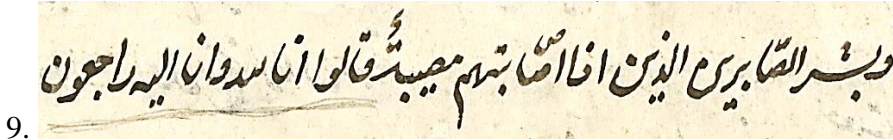 وبشر الصّابرين الذين اذا اصّابتهم مصيبةٌ قالوا انا لله وانا اليه راجعون
9.